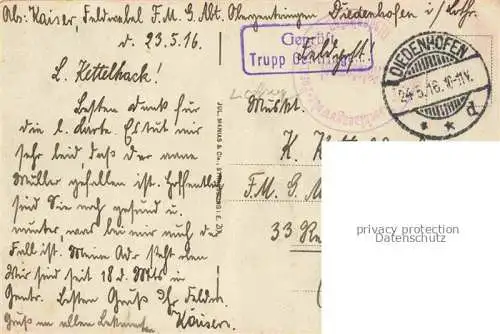 Abs: Kaiser, Feldwebel F. M. G. Abt. Obergentringen Diedenhofen i/Lothr.
d. 23.5.16.
Geprüft
Trupp Gentringen
Feldpost!
DIEDENHOFEN
24.5.16. 10-11V.
* * d
L. Kettelhack!
Besten Dank für
die l. Karte. Es tut mir
sehr leid, daß der arme
Müller gefallen ist. Hoffentlich
sind Sie noch gesund u.
munter, was bei mir auch der
Fall ist. Meine Adr steht oben
Wir sind seit 18 d. Mts in
Gentr. Besten Gruß Ihr Feldw.
Kaiser.
Gruß an alle Bekannten
JUL. MANIAS & CIE., STRASSBURG I. E.
Muskt.
K. K
F. M. G
33 Re
privacy protection
Datenschutz